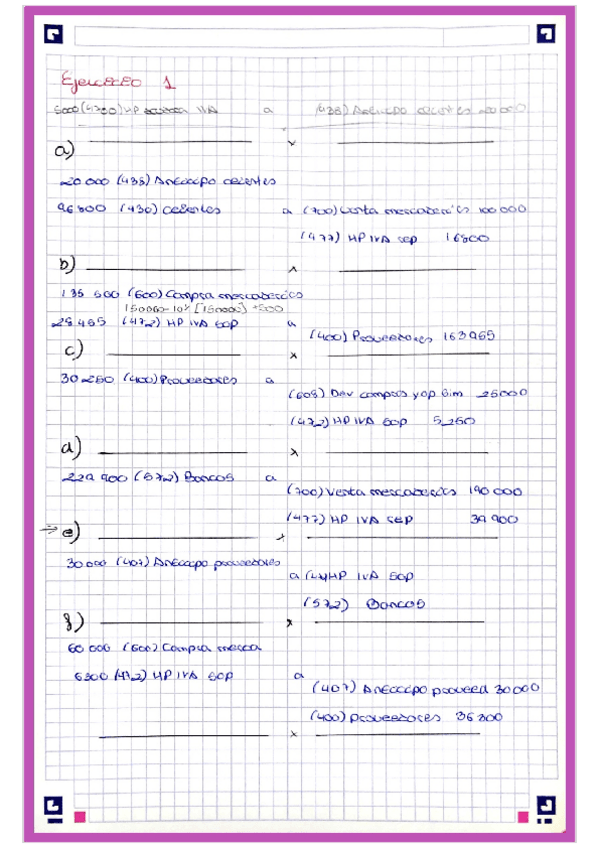 Ejercicio 1
5000 (4700) HP IVA a (438) Anticipo clientes 20000
a) x
20 000 (438) Anticipo clientes
96800 (430) clientes a (700) Venta mercaderías 100 000
(477) HP IVA rep 16800
b) x
135 500 (600) Compra mercaderías
150000-10% [150000] +500
28 455 (472) HP IVA sop a
(400) Proveedores 163955
c) x
30 250 (400) Proveedores a
(608) Dev compras y op. Sim 25000
(472) HP IVA sop 5,250
d) x
229 900 (572) Bancos a
(700) Venta mercaderías 190 000
(477) HP IVA rep 39 900
⇒ e) x
30 000 (407) Anticipo proveedores
a HP IVA sop
(572) Bancos
f) x
60 000 (600) Compra merca
6300 (472) HP IVA sop a
(407) Anticipo proveed 30000
(400) Proveedores 36 300
x